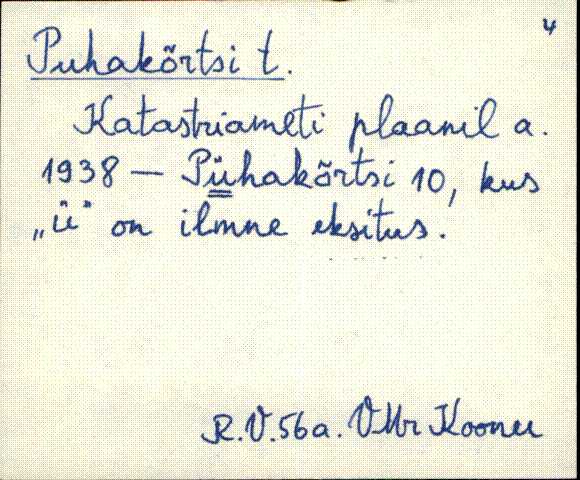 4
Puhakõrtsi t.
Katastriameti plaanil a.
1938 — Pühakõrtsi 10, kus
„ü" on ilmne eksitus.
R.V.56a. VMr Kooner